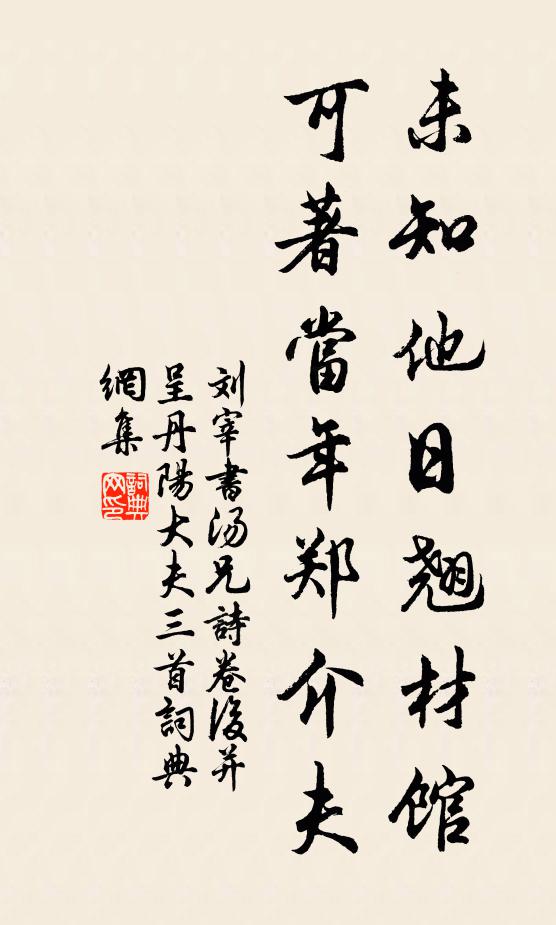 未知他日翘材馆
可著當年郑介夫
刘宰書汤兄詩卷後并
呈丹陽大夫三首詞典
網集
詞典
网印